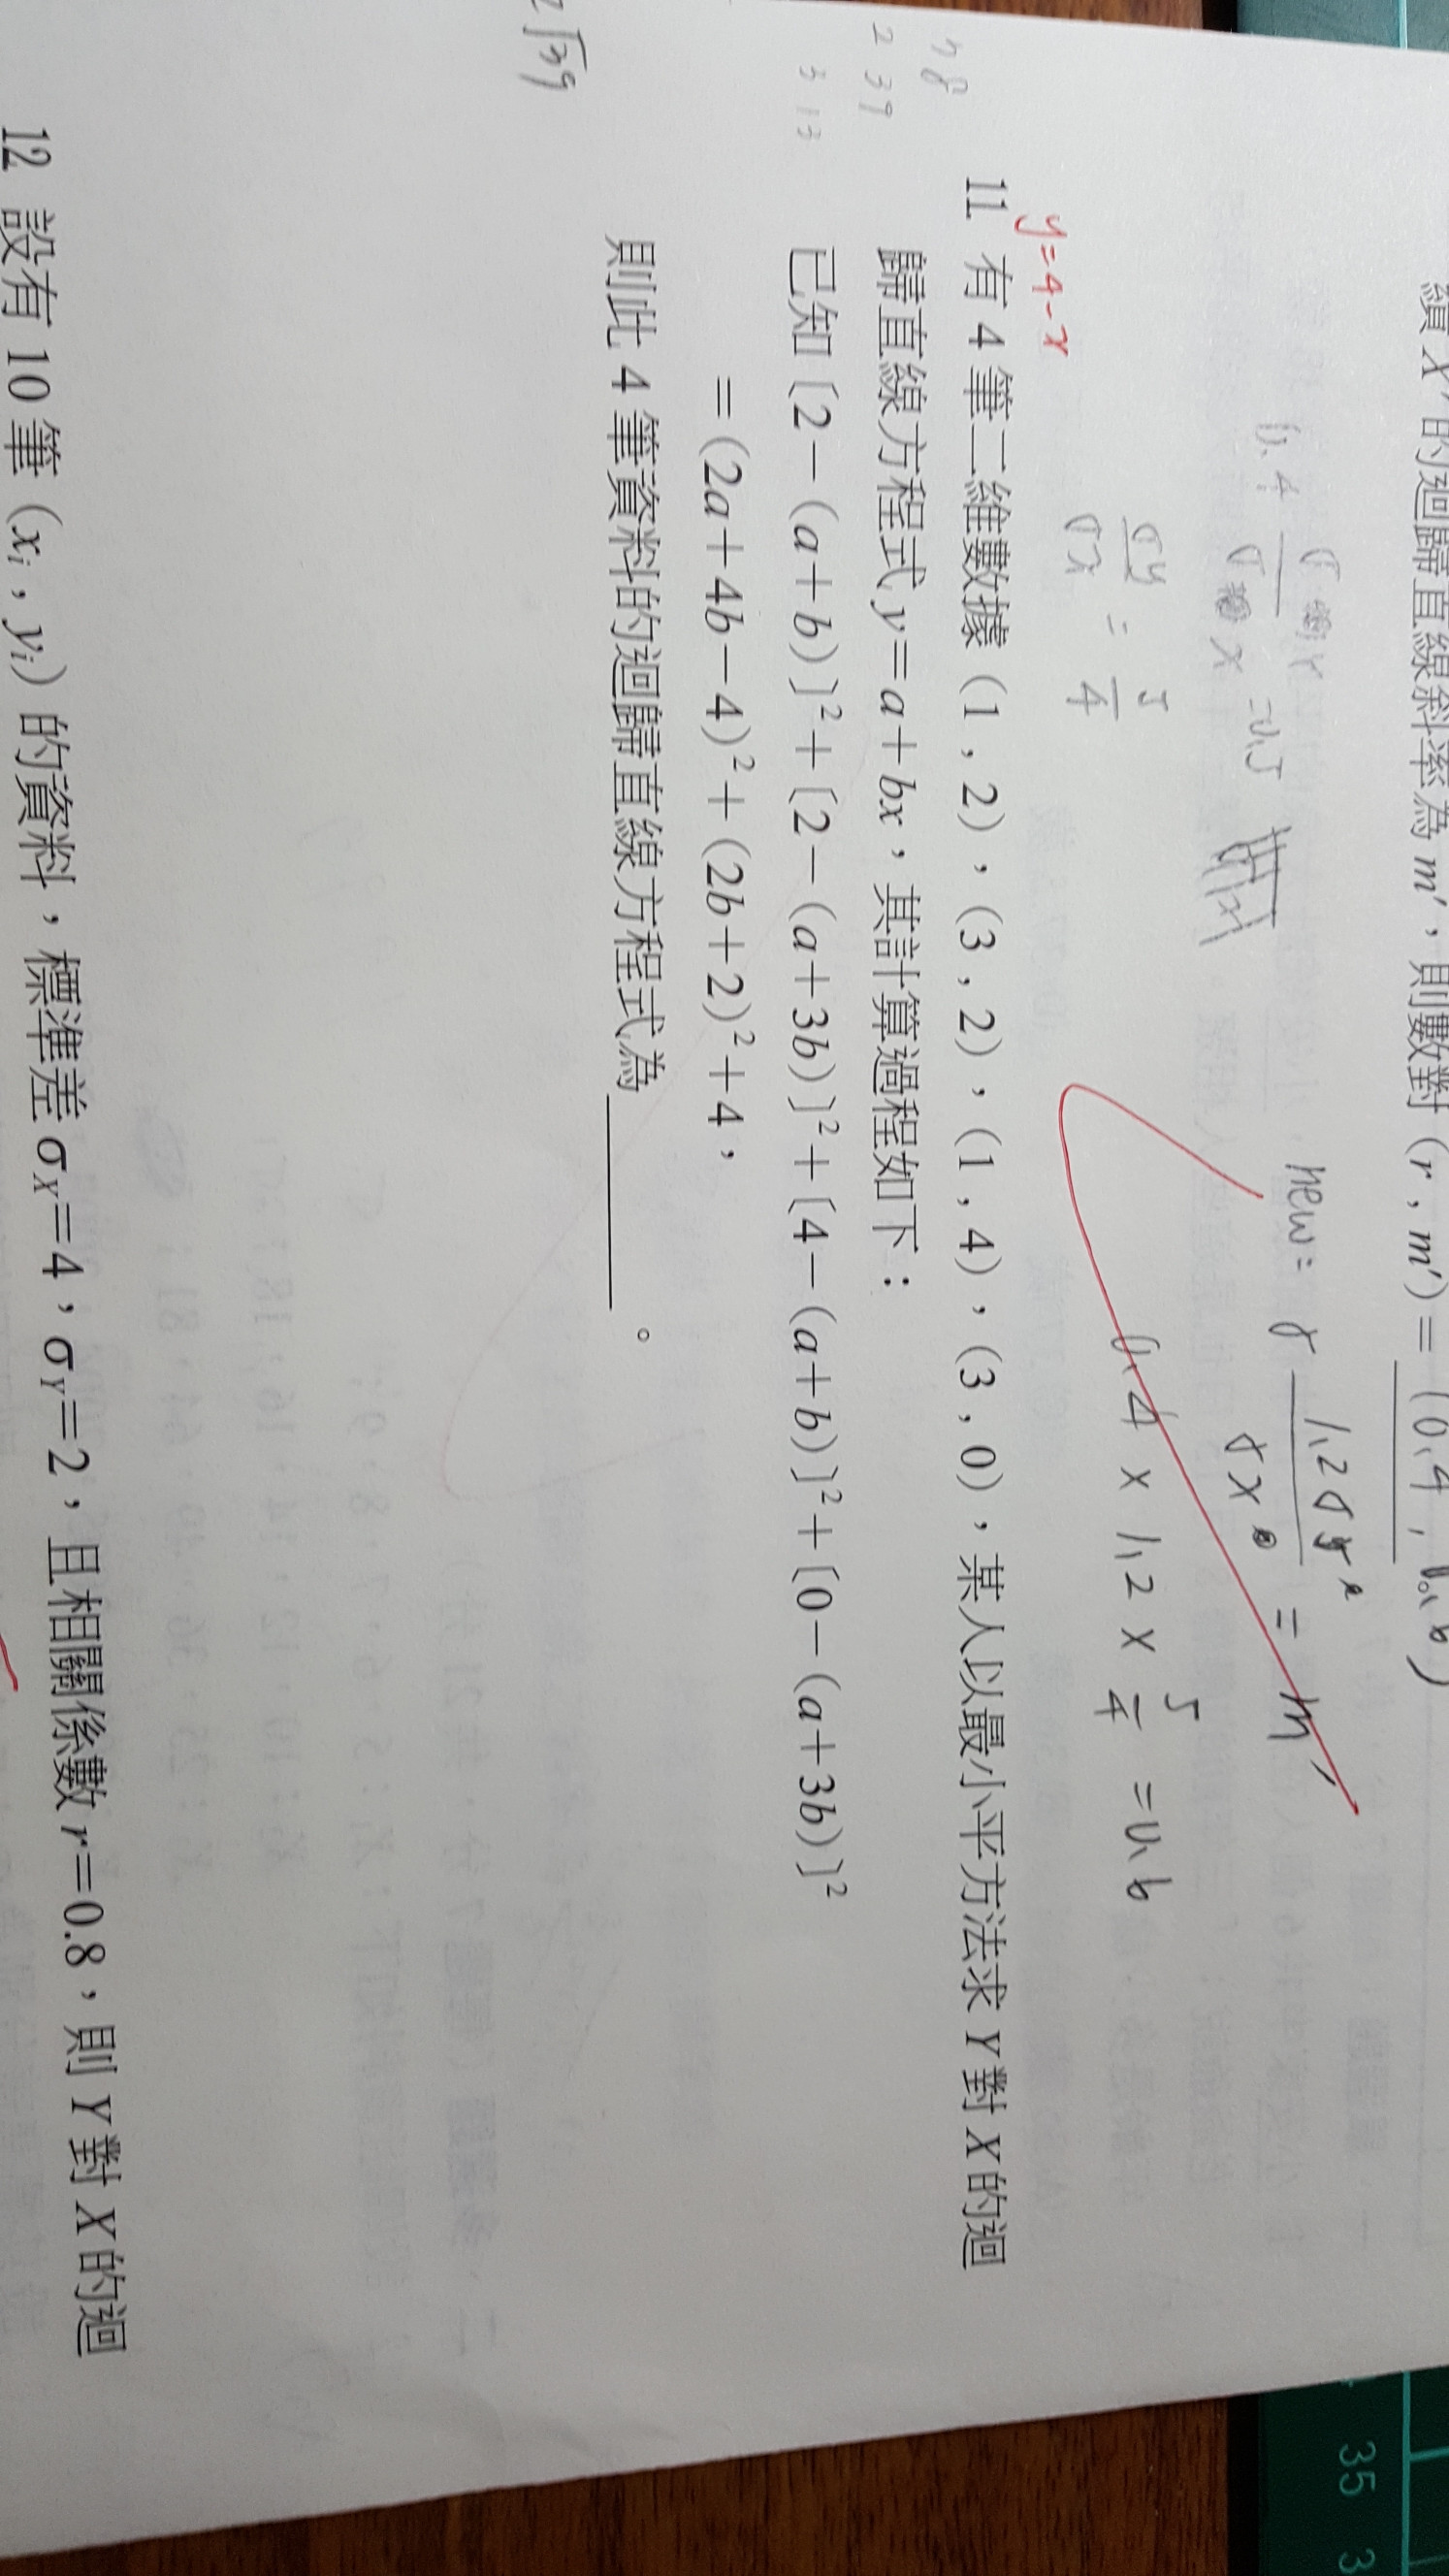 績 X′的迴歸直線斜率為 m′，則數對（r , m′）= (0.4, 0.6)
σY
0.4 ── = 0.5
σ X
new = r 1.2σy / σx = m′
σy / σx = 5 / 4
0.4 × 1.2 × 5/4 = 0.6
y=4-x
78
2 39
3 13
11 有 4 筆二維數據（1 , 2），（3 , 2），（1 , 4），（3 , 0），某人以最小平方法求 Y 對 X 的迴
歸直線方程式 y=a+bx，其計算過程如下：
已知〔2－(a+b)〕²+〔2－(a+3b)〕²+〔4－(a+b)〕²+〔0－(a+3b)〕²
=(2a+4b－4)²+(2b+2)²+4，
則此 4 筆資料的迴歸直線方程式為＿＿＿＿。
2√39
12 設有 10 筆（xi , yi）的資料，標準差 σX=4，σY=2，且相關係數 r=0.8，則 Y 對 X 的迴
35